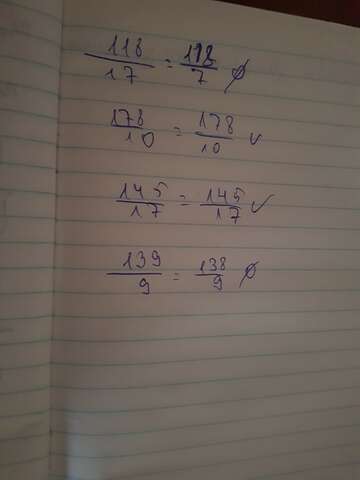 118/17 = 118/7 ∅
178/10 = 178/10 ✓
145/17 = 145/17 ✓
139/9 = 138/9 ∅